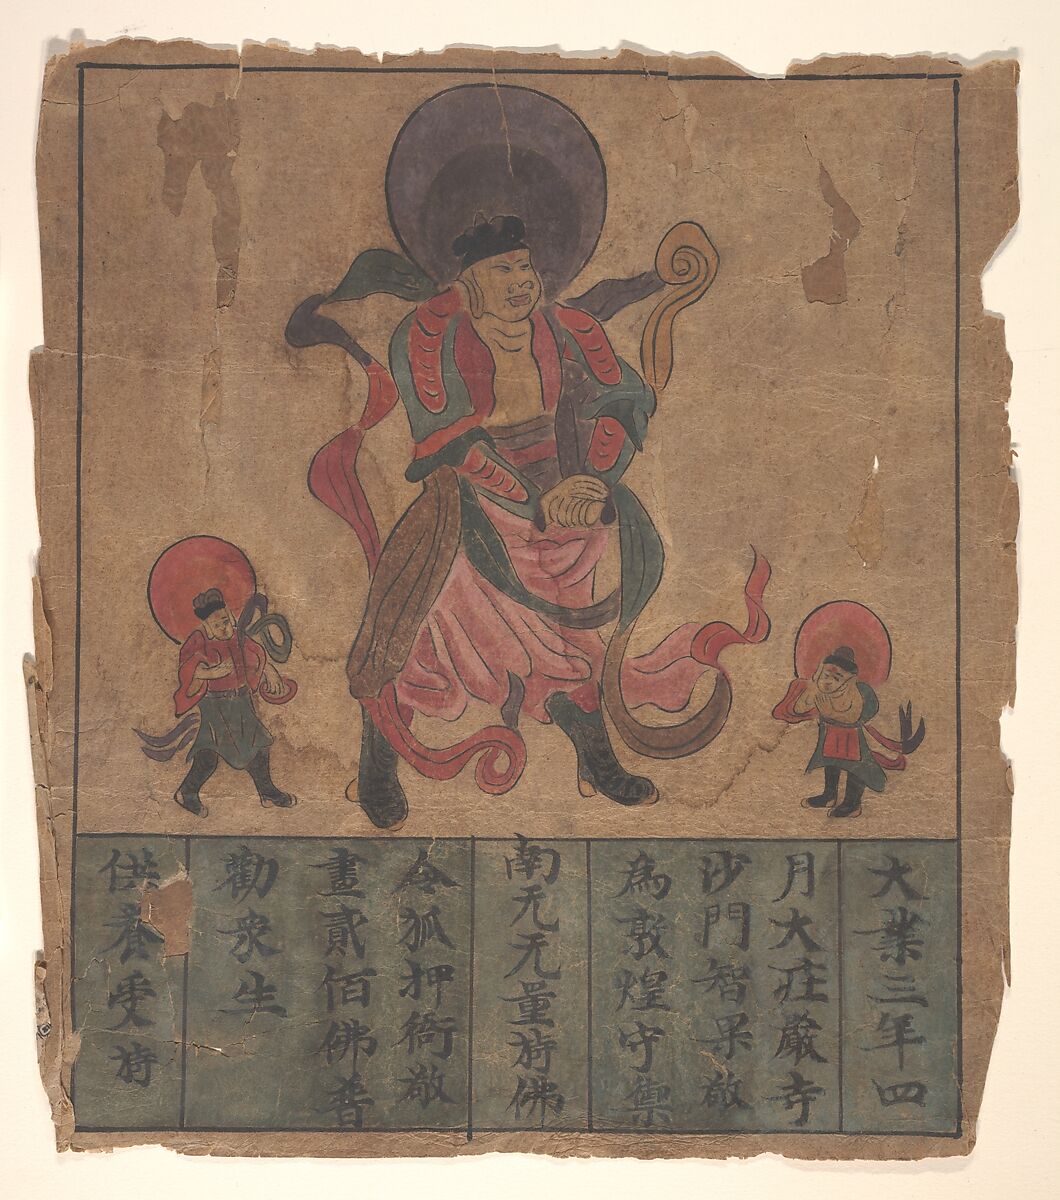 大業三年四
月大莊嚴寺
沙門智果敬
為敦煌守禦
南无无量壽佛
令狐押衙敬
畫貳佰佛普
勸衆生
供養受持